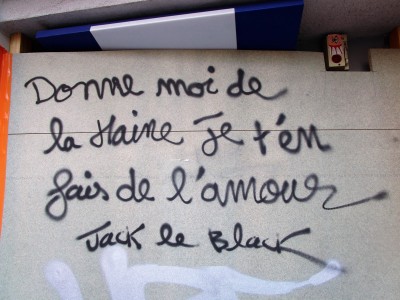 Donne moi de
la Haine Je t'en
fais de l'amour
Jack le Black